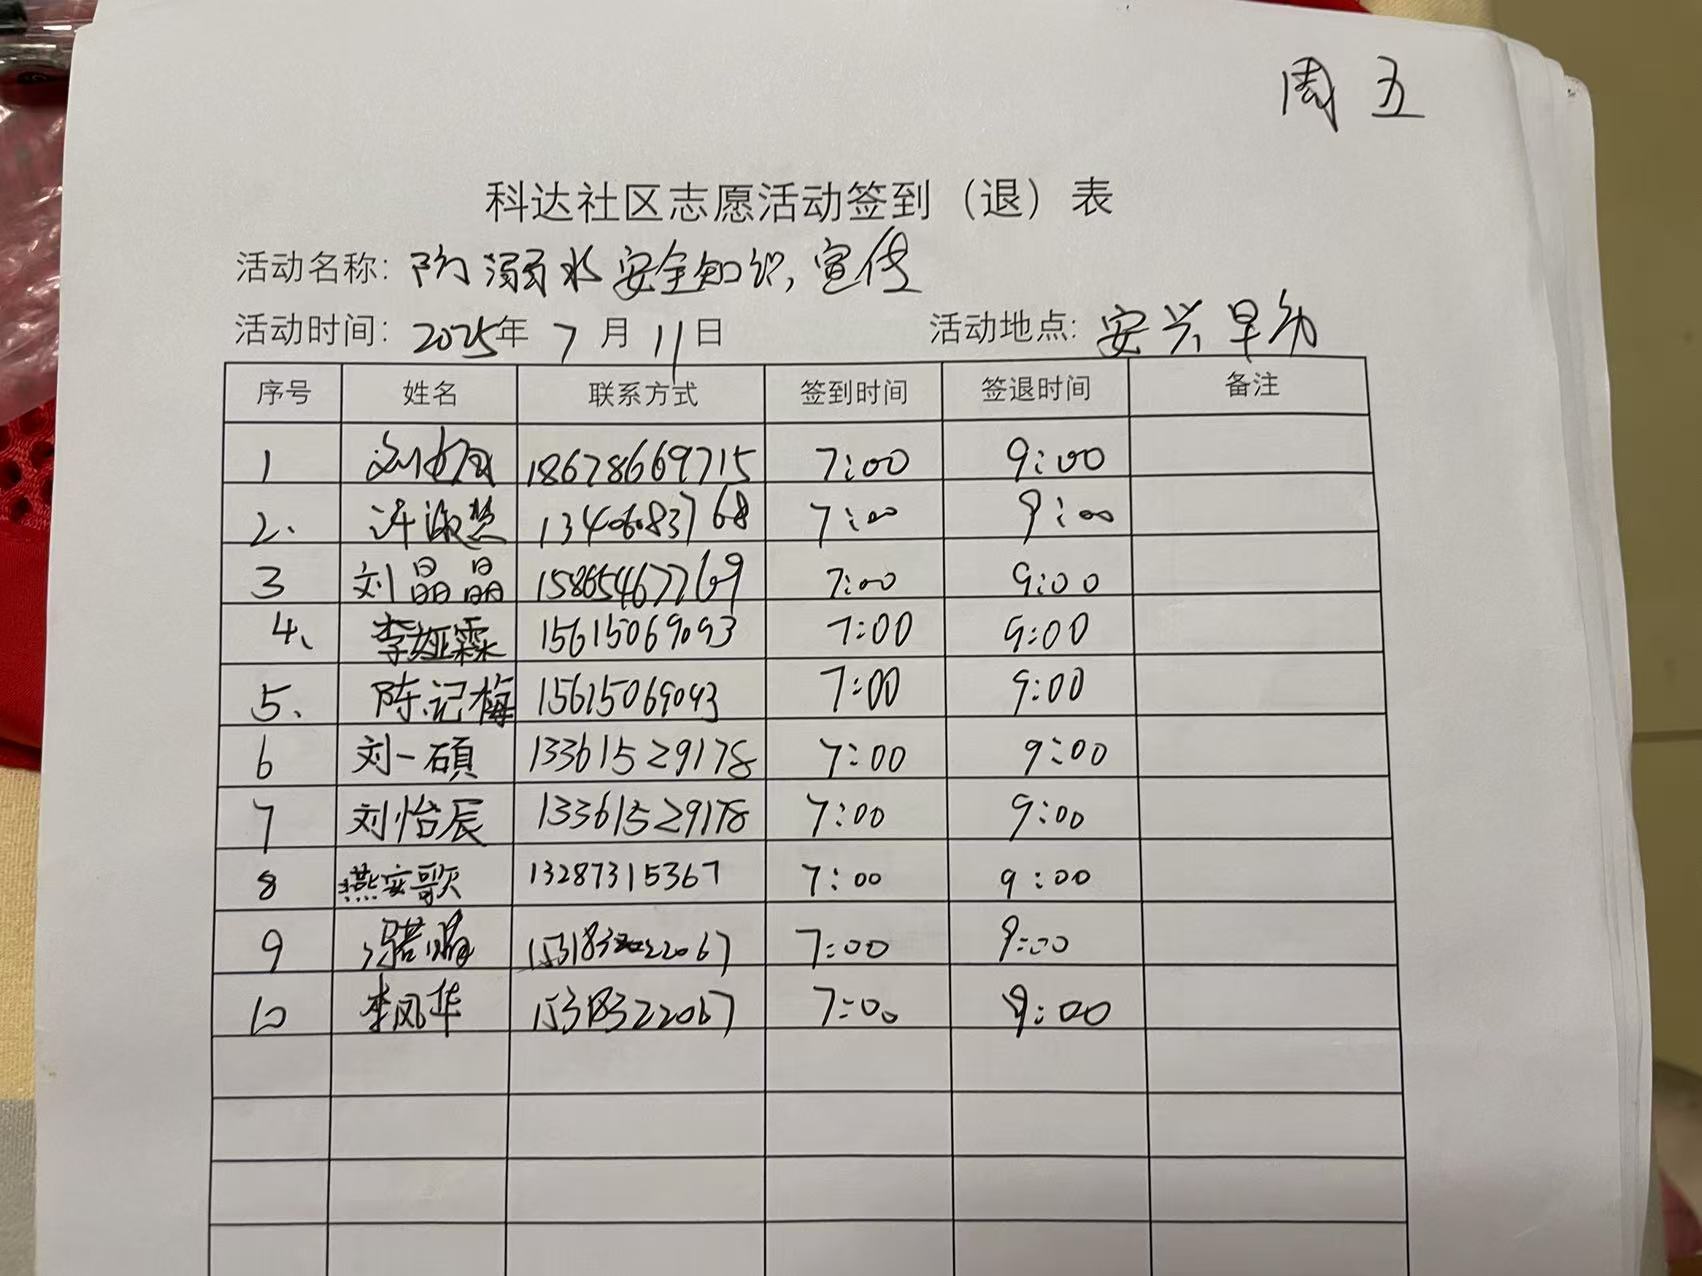 周五
科达社区志愿活动签到（退）表
活动名称: 防溺水安全知识,宣传
活动时间: 2025年 7 月 11 日 活动地点: 安兴早幼
序号 姓名 联系方式 签到时间 签退时间 备注
1 刘 18678669715 7:00 9:00
2. 许淑慧 13406083768 7:00 9:00
3 刘晶晶 15865467769 7:00 9:00
4、 李娅霖 15615069093 7:00 9:00
5、 陈记梅 15615069093 7:00 9:00
6 刘一碩 13361529178 7:00 9:00
7 刘怡辰 13361529178 7:00 9:00
8 燕安歌 13287315367 7:00 9:00
9 7:00 9:00
10 李凤华 15318322067 7:00 9:00